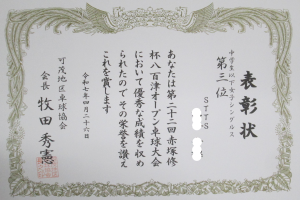 表彰状
中学生以下女子シングルス
第三位
STTS
あなたは第二十二回赤塚修
杯八百津オープン卓球大会
において優秀な成績を収め
られたのでその栄誉を讃え
これを賞します
令和七年四月二十六日
可茂地区卓球協会
会長 牧田秀憲